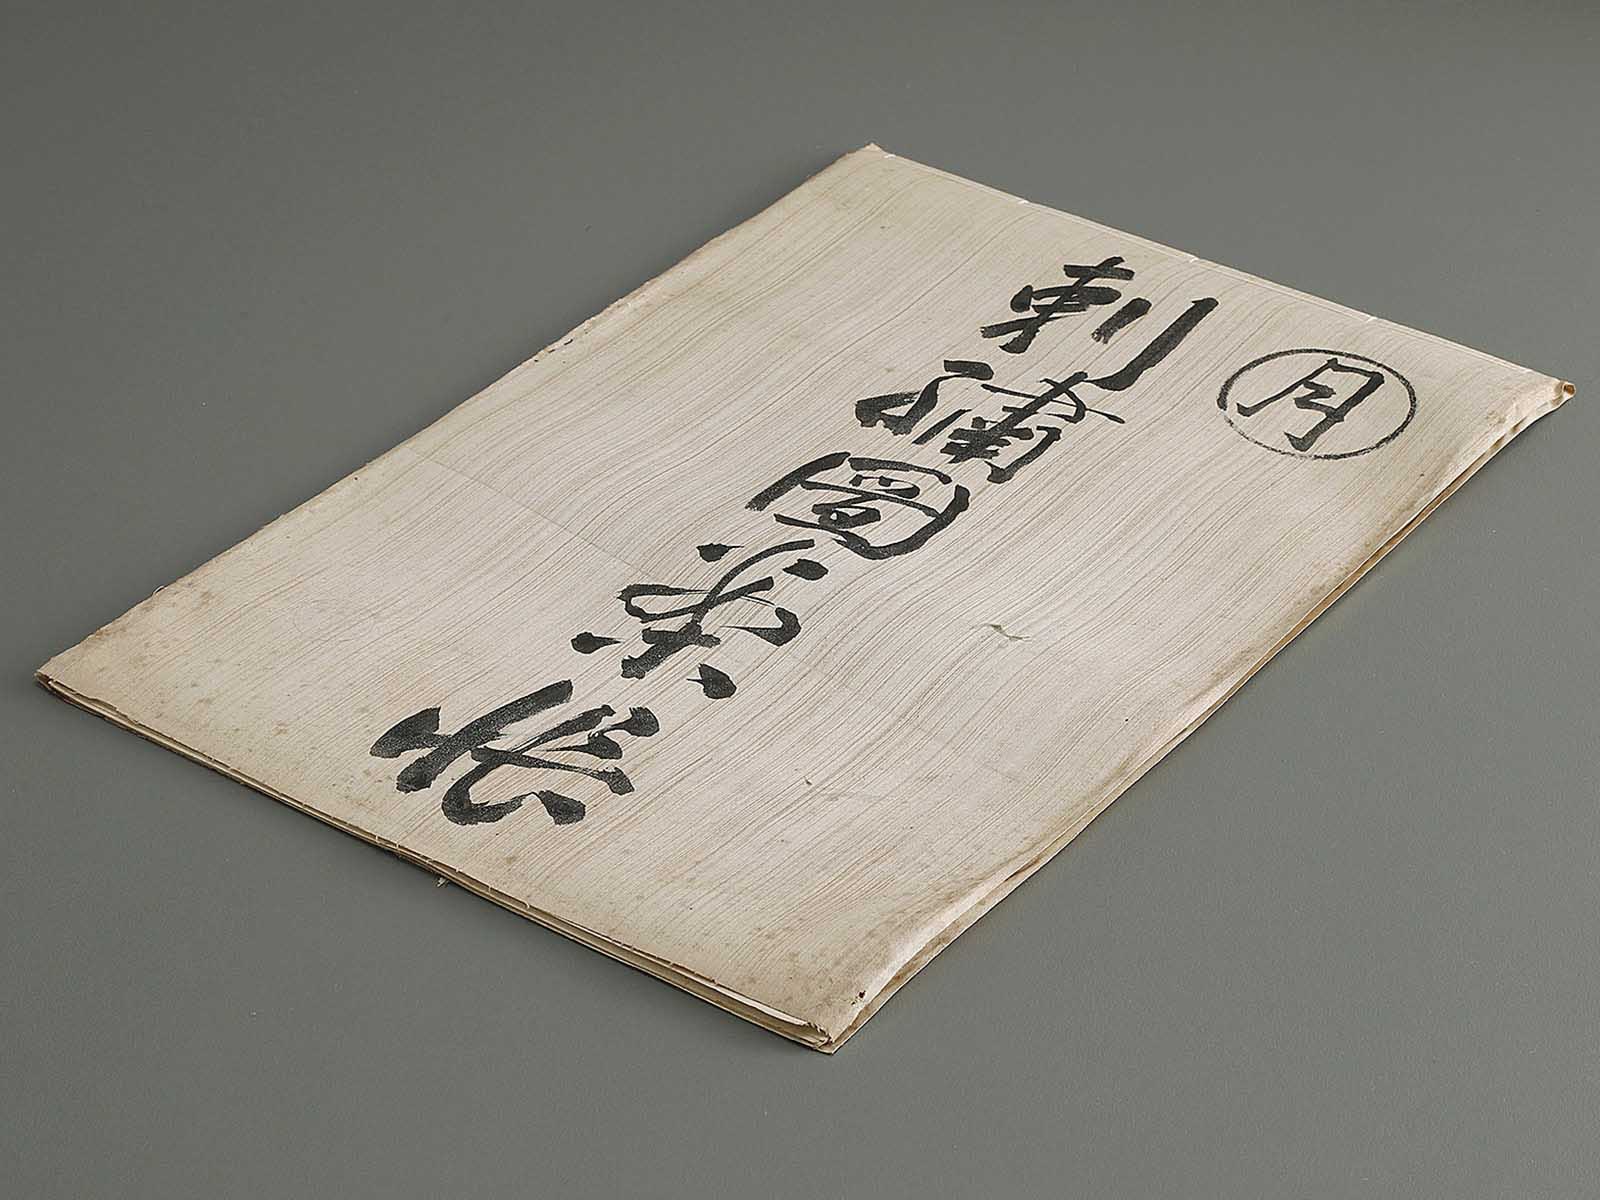 月
刺繍圖案帳